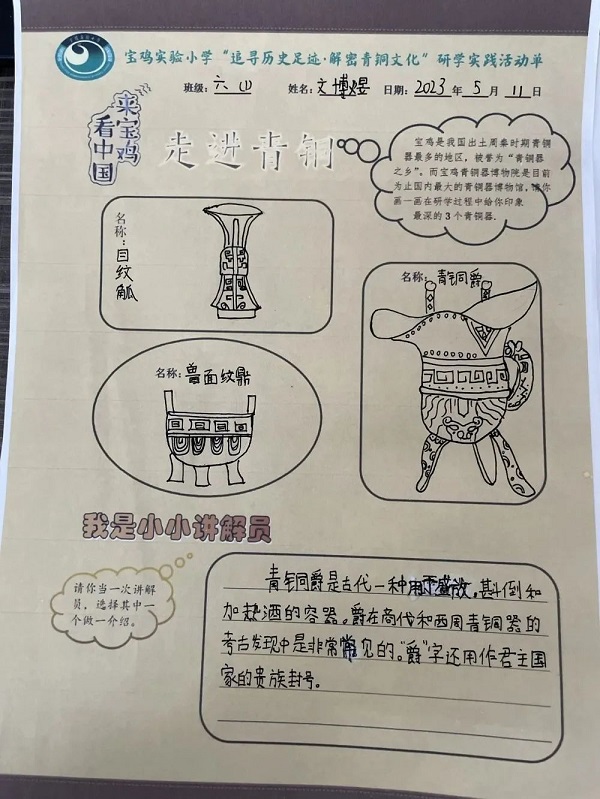 宝鸡实验小学“追寻历史足迹·解密青铜文化”研学实践活动单
班级：六（1） 姓名：文博煜 日期：2023年5月11日
来宝鸡
看中国
走进青铜
宝鸡是我国出土周秦时期青铜
器最多的地区，被誉为“青铜器
之乡”。而宝鸡青铜器博物院是目前
为止国内最大的青铜器博物馆，请你
画一画在研学过程中给你印象
最深的3个青铜器。
名称：目纹觚
名称：青铜爵
名称：兽面纹鼎
我是小小讲解员
请你当一次讲解
员，选择其中一
个做一介绍。
青铜爵是古代一种用于盛放，斟倒和
加热酒的容器。爵在商代和西周青铜器的
考古发现中是非常常见的。“爵”字还用作君主国
家的贵族封号。